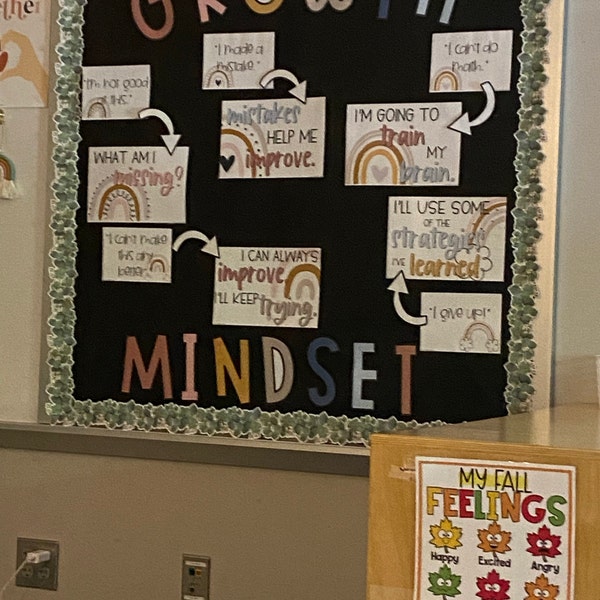 GROWTH
"I made a
mistake."
"I can't do
math."
"I'm not good
at this."
mistakes
HELP ME
improve.
I'M GOING TO
train
MY
brain.
WHAT AM I
missing?
I'LL USE SOME
OF THE
strategies
I'VE
learned?
"I can't make
this any
better."
I CAN ALWAYS
improve
I'LL KEEP
trying.
"I give up!"
MINDSET
MY FALL
FEELINGS
Happy
Excited
Angry